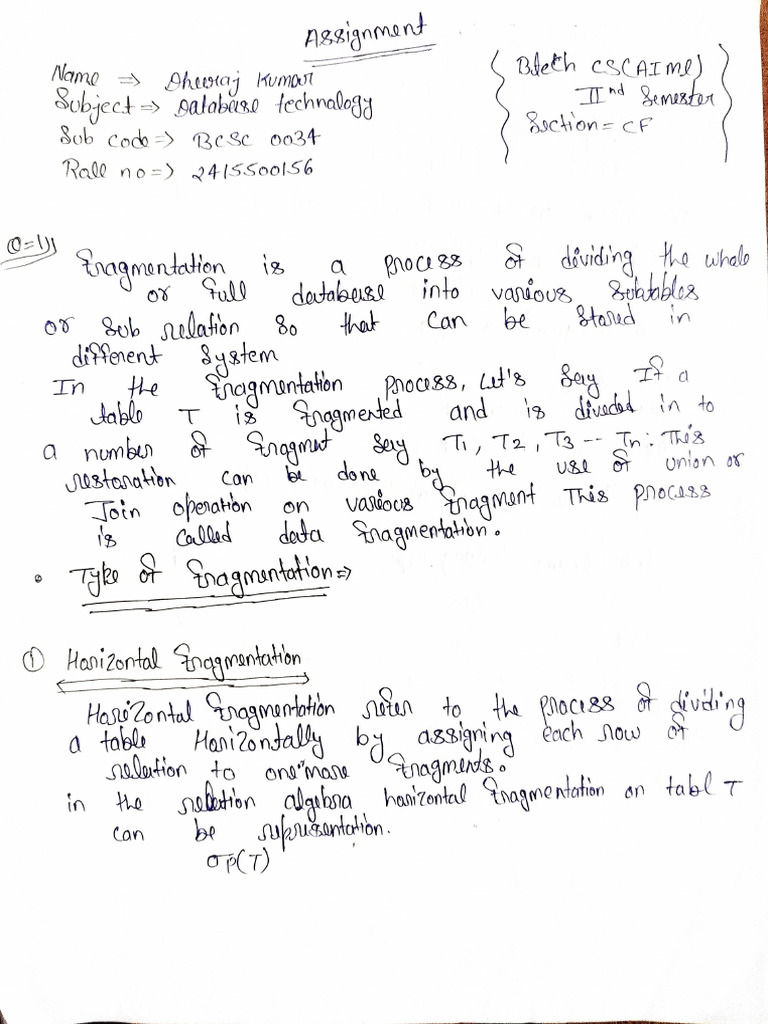 Assignment
Name => Dheeraj Kumar
Subject => Database technology
Sub code => BCSC 0034
Roll no => 2415500156
Btech CS(AIML)
IInd Semester
Section = CF
Q=1)))
Fragmentation is a process of dividing the whole
or full database into various subtables
or sub relation so that can be stored in
different system
In the fragmentation process, Let's say If a
table T is fragmented and is divided in to
a number of fragment say T1, T2, T3 -- Tn. This
restoration can be done by the use of union or
Join operation on various fragment This process
is called data fragmentation.
• Type of fragmentation =>
① Horizontal fragmentation
Horizontal fragmentation refer to the process of dividing
a table Horizontally by assigning each row of
relation to one more fragments.
in the relation algebra horizontal fragmentation on tabl T
can be representation.
σp(T)